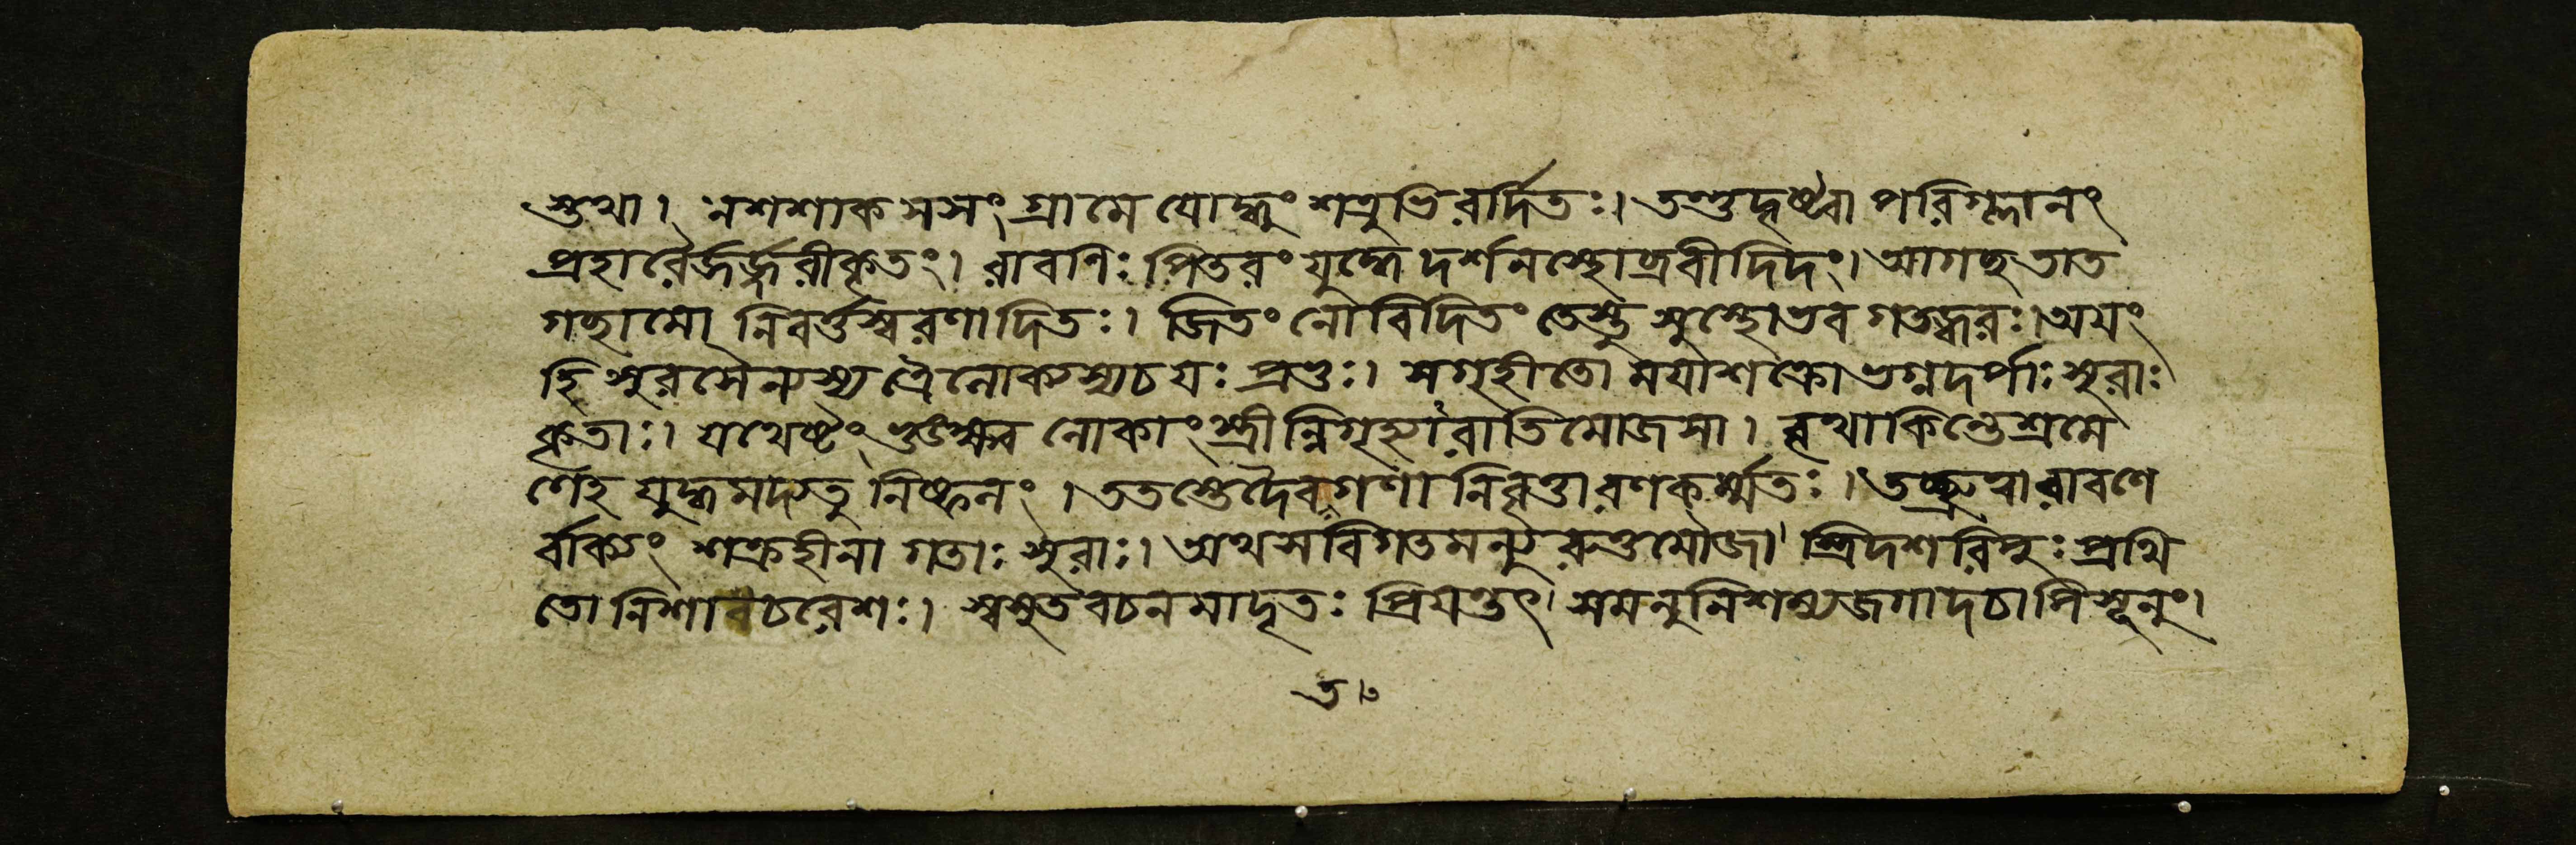 স্তথা। নশশাক সসং গ্রামে যোদ্ধুং শত্রুভিরর্দিতঃ। তন্তুদৃষ্ট্বা পরিগ্লানং
প্রহারৈর্জর্জ্জরীকৃতং। রাবণিঃ পিতরং যুদ্ধে দর্শনস্থোব্রবীদিদং। আগচ্ছ তাত
গচ্ছামো নিবর্ত্তস্বরণাদিতঃ। জিতং নো বিদিতং তেস্তু সুস্থো ভব গতজ্বরঃ। অযং
হি সুরসৈন্যস্য ত্রৈলোক্যস্যচ যঃ প্রভুঃ। সগৃহীতো মযাশক্রো ভগ্নদর্পাঃ সুরাঃ
কৃতাঃ। যথেষ্টং ভুঙ্ক্ষ্ব লোকাংস্ত্রীন্নিগৃহ্যারাতিমোজসা। বৃথাকিন্তেশ্রমে
ণেহ যুদ্ধমদ্যতু নিষ্ফলং। ততস্তেদৈবগণা নিবৃত্তা রণকর্ম্মতঃ। তচ্ছ্রুত্বা রাবণে
র্বাক্যং শক্রহীনা গতাঃ সুরাঃ। অথ সবিগতমন্যুরুত্তমৌজা স্ত্রিদশরিপুঃ প্রথি
তো নিশাচরেশঃ। স্বসুতবচনমাদৃতঃ প্রিযন্তৎ সমনুনিশম্যজগাদচাপি সূনুং।